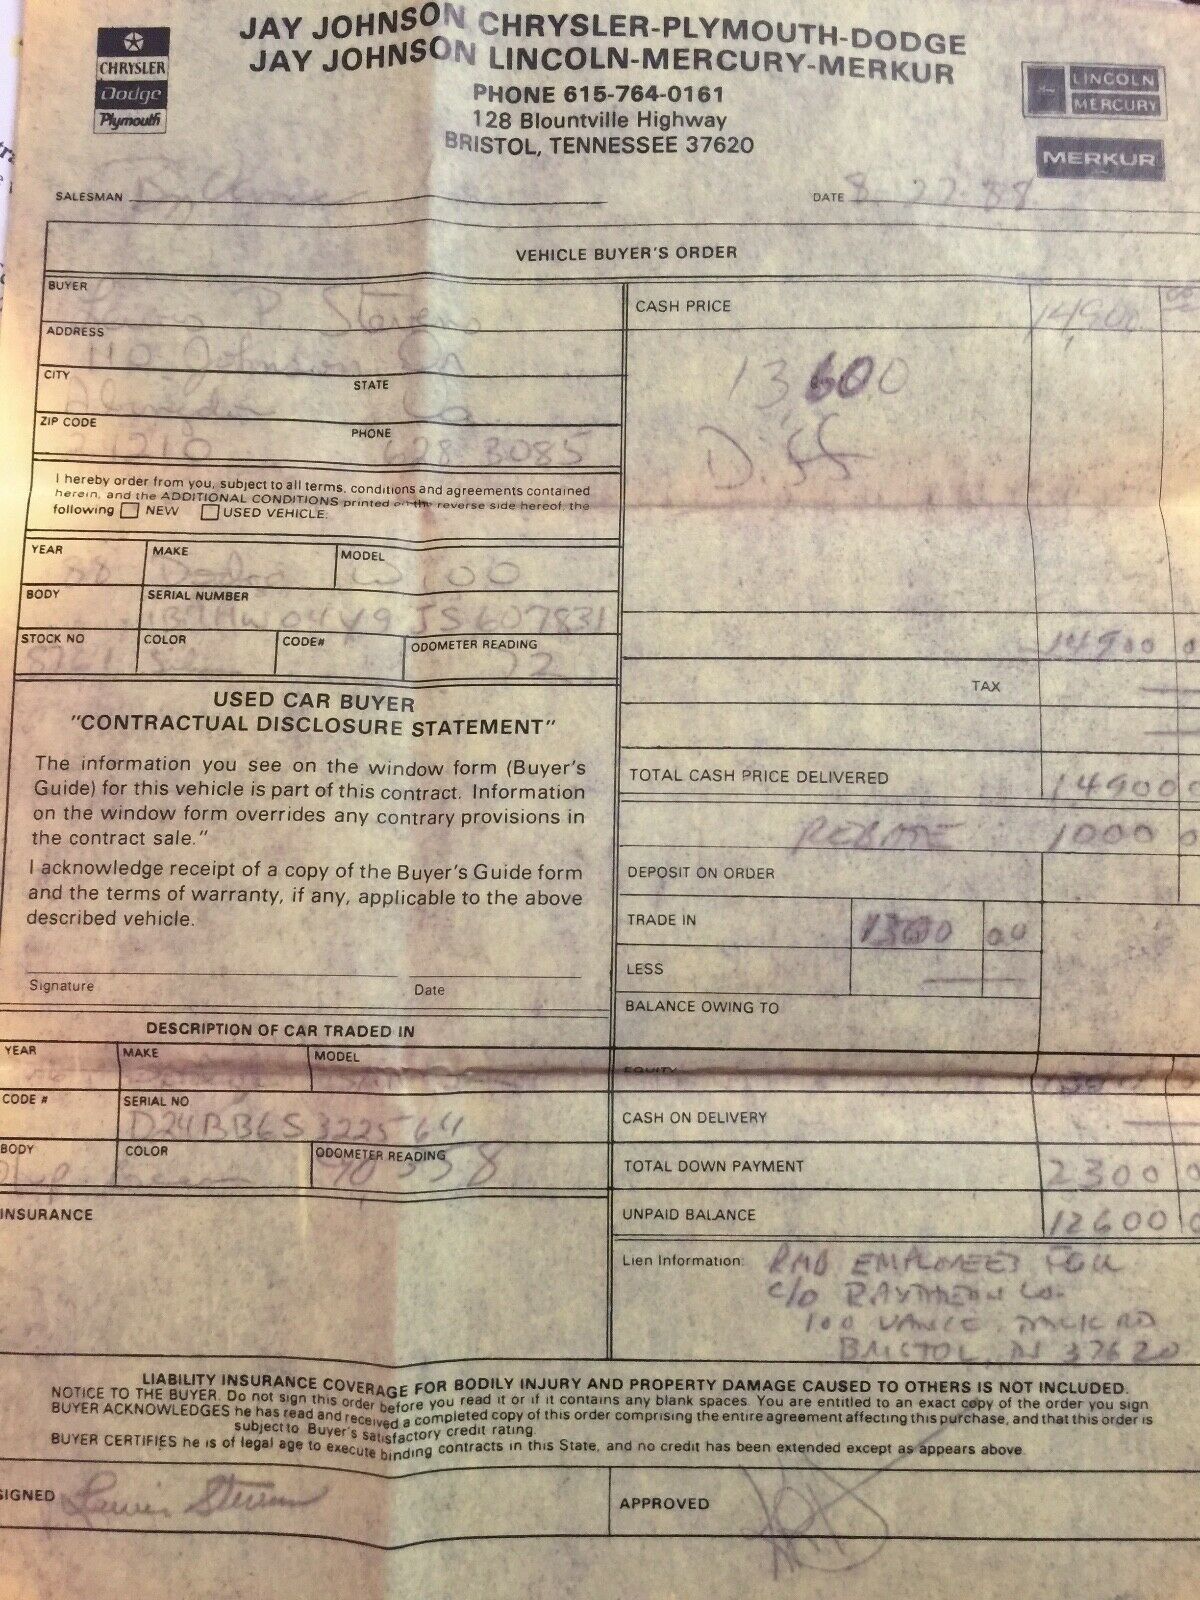 JAY JOHNSON CHRYSLER-PLYMOUTH-DODGE
JAY JOHNSON LINCOLN-MERCURY-MERKUR
PHONE 615-764-0161
128 Blountville Highway
BRISTOL, TENNESSEE 37620
CHRYSLER
Dodge
Plymouth
LINCOLN
MERCURY
MERKUR
SALESMAN
DATE 8-22-88
VEHICLE BUYER'S ORDER
BUYER Stevens
ADDRESS 110 Johnson Dr
CITY STATE
ZIP CODE PHONE 628 3085
I hereby order from you, subject to all terms, conditions and agreements contained
herein, and the ADDITIONAL CONDITIONS printed on the reverse side hereof, the
following NEW USED VEHICLE:
YEAR MAKE Dodge MODEL W100
BODY SERIAL NUMBER
STOCK NO COLOR CODE# ODOMETER READING 72
USED CAR BUYER
"CONTRACTUAL DISCLOSURE STATEMENT"
The information you see on the window form (Buyer's
Guide) for this vehicle is part of this contract. Information
on the window form overrides any contrary provisions in
the contract sale."
I acknowledge receipt of a copy of the Buyer's Guide form
and the terms of warranty, if any, applicable to the above
described vehicle.
Signature Date
DESCRIPTION OF CAR TRADED IN
YEAR MAKE MODEL
CODE # SERIAL NO D24BB6S322564
BODY COLOR ODOMETER READING
INSURANCE
CASH PRICE 14900 00
13600
Diff
14900 0
TAX
TOTAL CASH PRICE DELIVERED 14900 0
REBATE 1000 0
DEPOSIT ON ORDER
TRADE IN 1300 00
LESS
BALANCE OWING TO
EQUITY
CASH ON DELIVERY
TOTAL DOWN PAYMENT 2300 0
UNPAID BALANCE 12600 0
Lien Information: RMD EMPLOYEES FCU
c/o RAYTHEON Co.
100 VANCE TANK RD
BRISTOL, TN 37620
LIABILITY INSURANCE COVERAGE FOR BODILY INJURY AND PROPERTY DAMAGE CAUSED TO OTHERS IS NOT INCLUDED.
NOTICE TO THE BUYER. Do not sign this order before you read it or if it contains any blank spaces. You are entitled to an exact copy of the order you sign
BUYER ACKNOWLEDGES he has read and received a completed copy of this order comprising the entire agreement affecting this purchase, and that this order is
subject to Buyer's satisfactory credit rating.
BUYER CERTIFIES he is of legal age to execute binding contracts in this State, and no credit has been extended except as appears above.
SIGNED Lewis Stevens
APPROVED